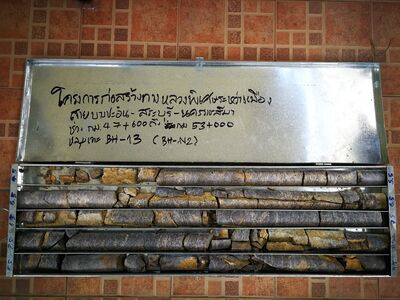 โครงการก่อสร้างทางหลวงพิเศษระหว่างเมือง
สายบางปะอิน-สระบุรี-นครราชสีมา
ช่วง กม. 47+600 ถึง กม 53+000
หลุมเจาะ BH-13 (BH-N2)